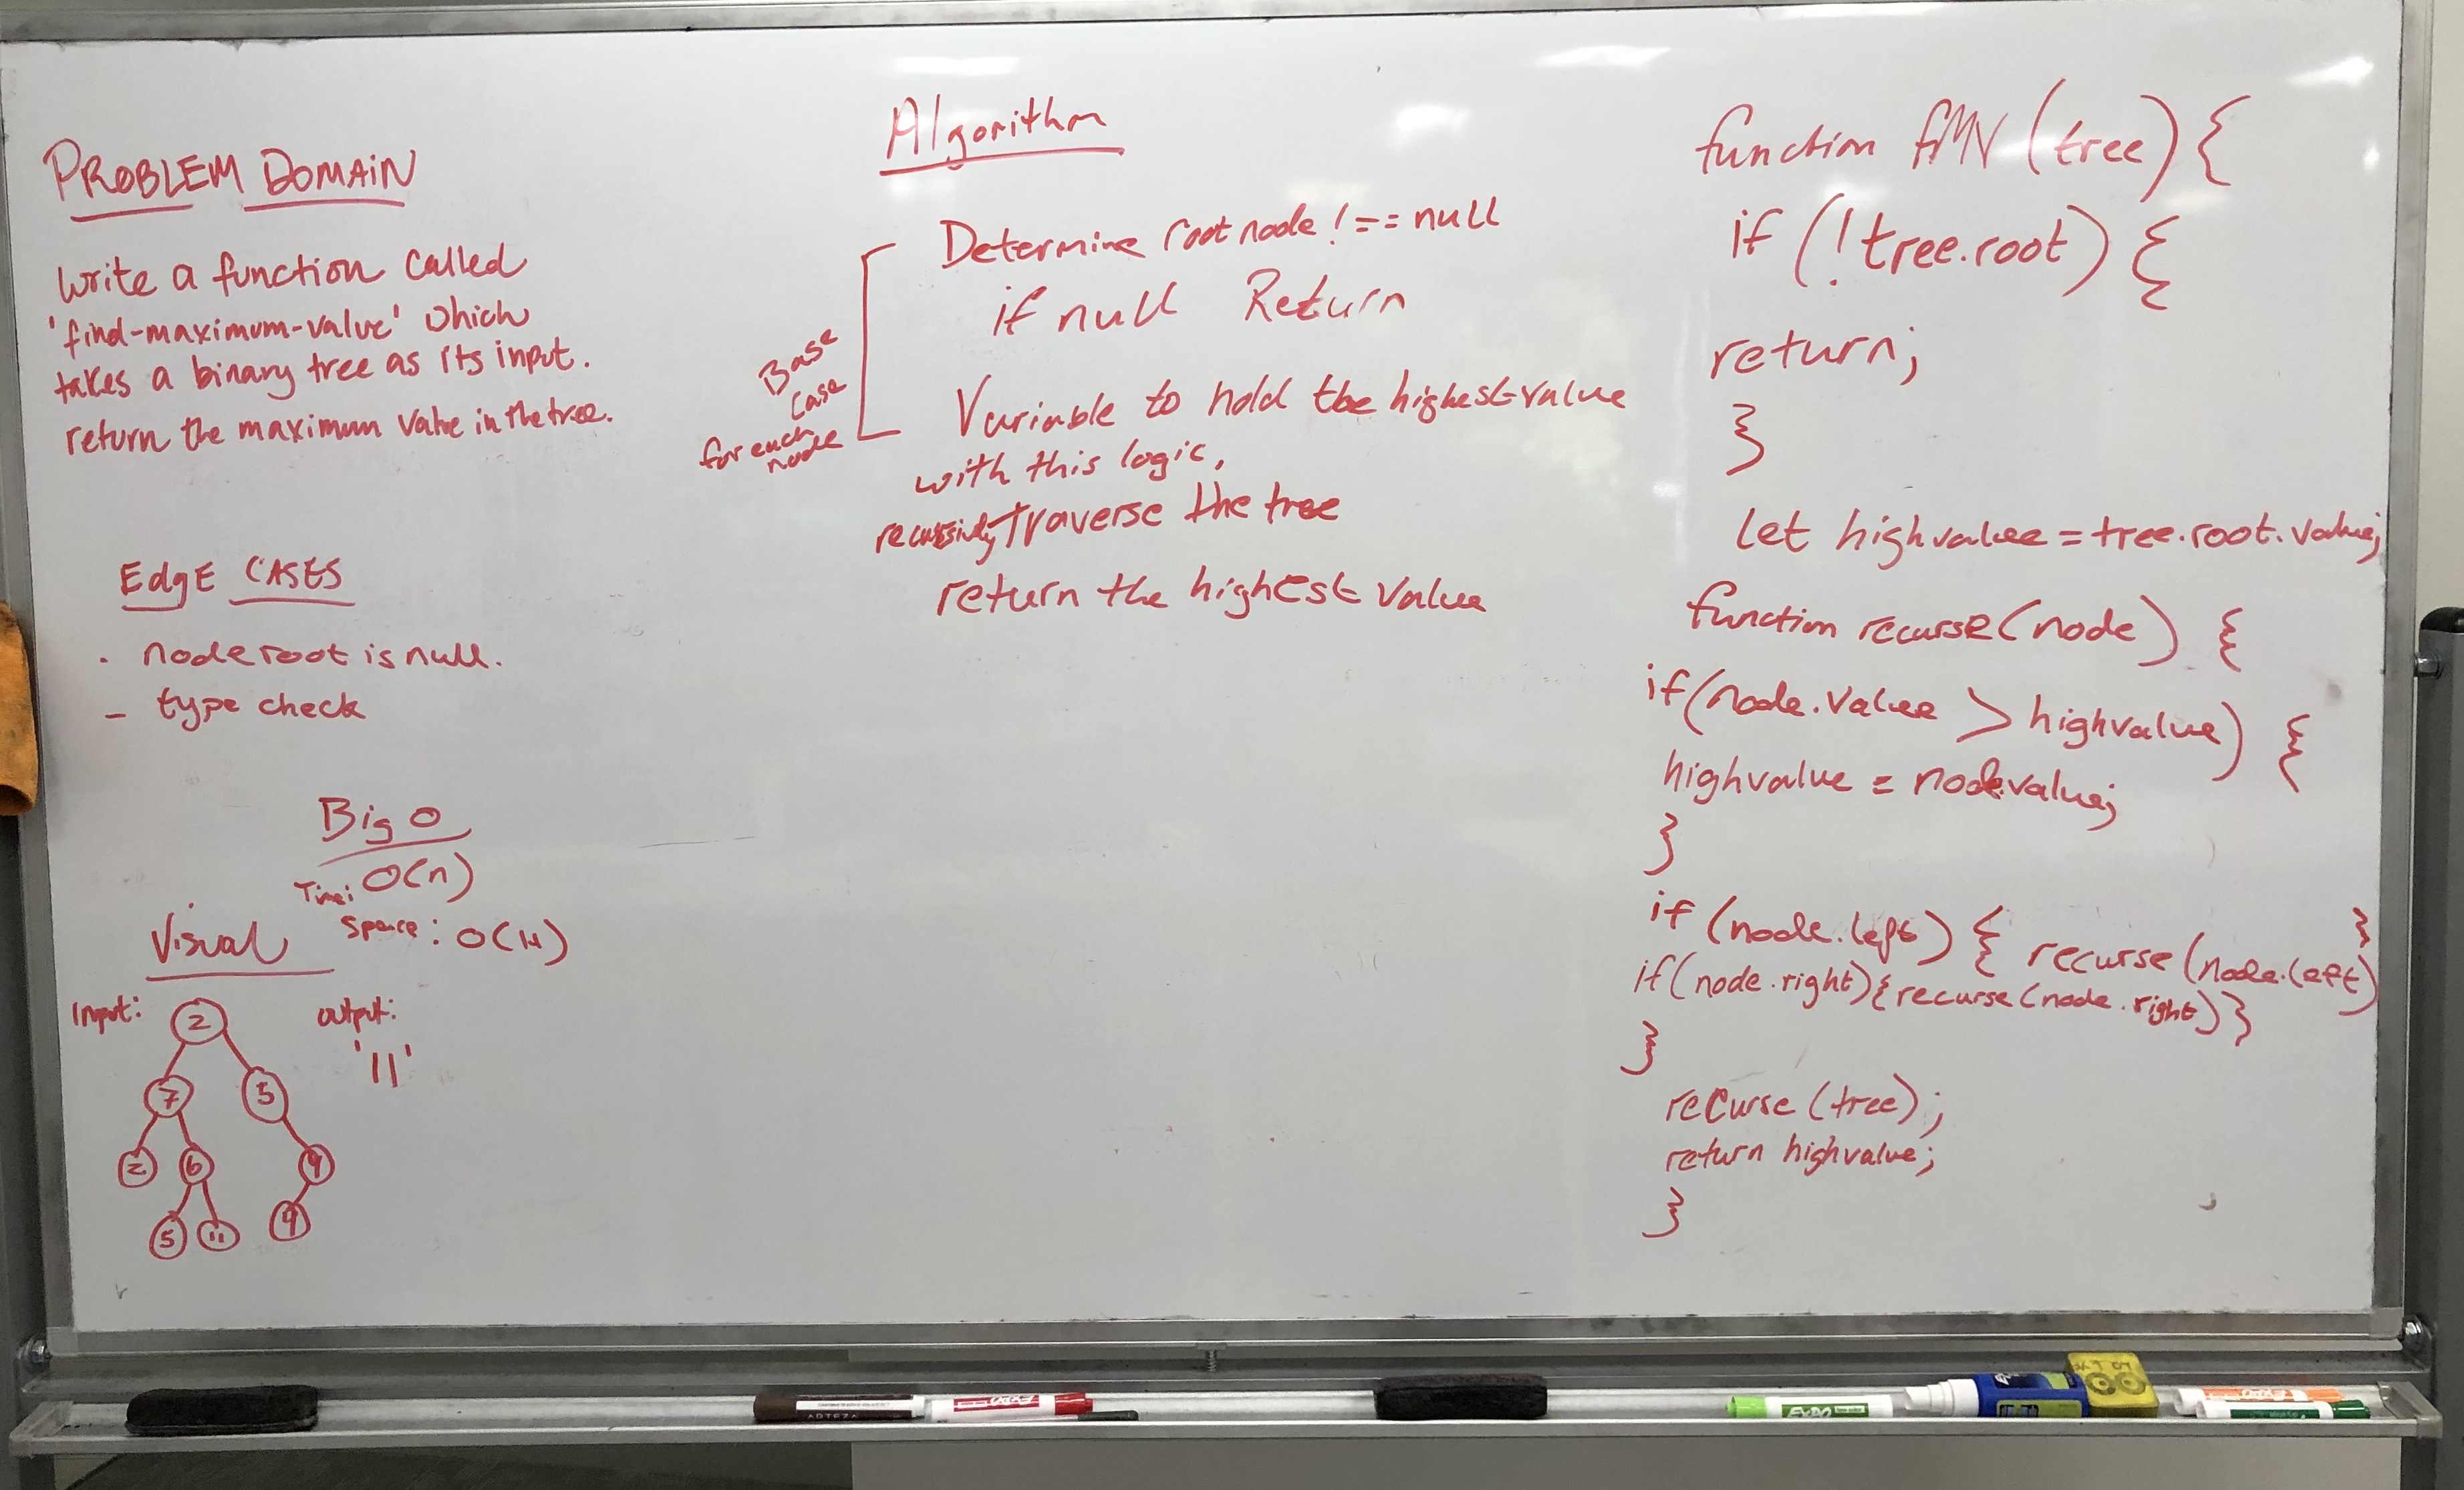 PROBLEM DOMAIN
Write a function called
'find-maximum-value' which
takes a binary tree as its input.
return the maximum value in the tree.
Edge CASES
. node root is null.
- type check
Big O
Time: O(n)
Space: O(H)
Visual
Input:
output:
'11'
2
7 5
2 6 9
5 11 9
Algorithm
Determine root node !== null
if null Return
Base
Case
for each
node
Variable to hold the highest value
with this logic,
recursively Traverse the tree
return the highest value
function fMV (tree) {
if (!tree.root) {
return;
}
let highvalue = tree.root.value;
function recurse(node) {
if(node.value > highvalue) {
highvalue = node.value;
}
if (node.left) { recurse (node.left) }
if(node.right){recurse(node.right)}
}
recurse (tree);
return highvalue;
}
EXPO
ARTEZA
EXPO